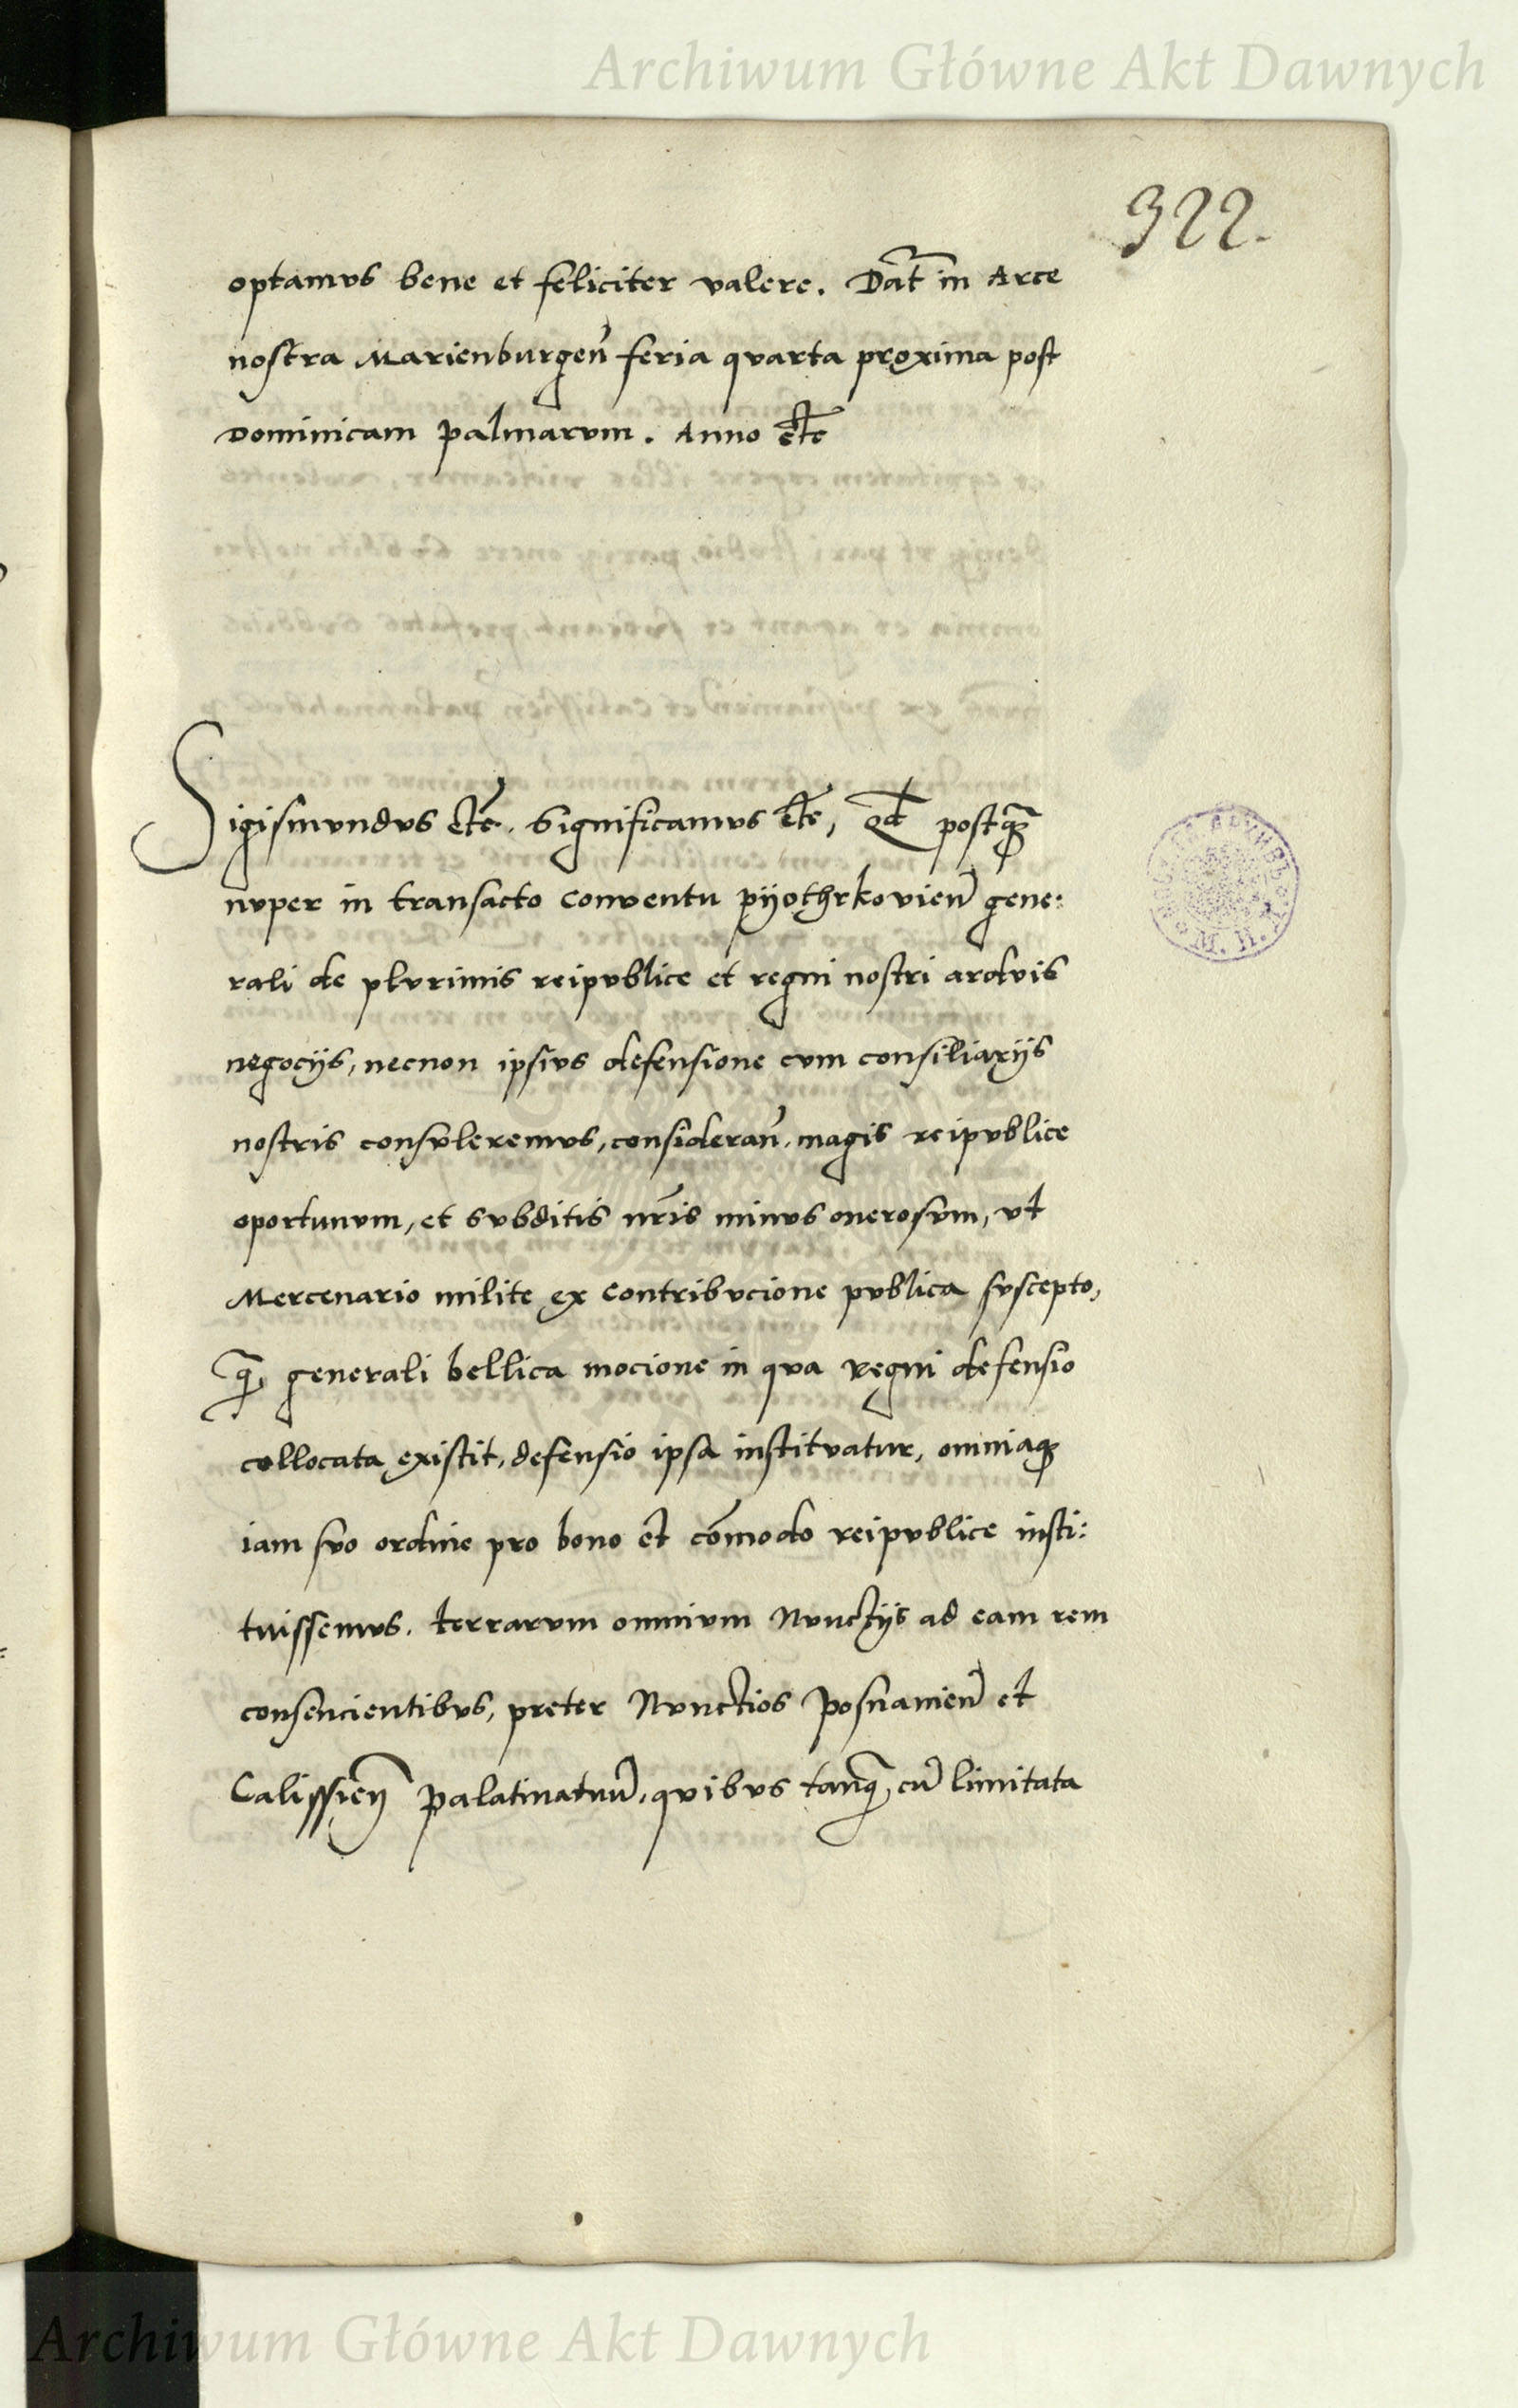 Archiwum Główne Akt Dawnych
322.
optamus bene et feliciter valere. Dat̄ in Arce
nostra Marienburgen̄ feria quarta proxima post
Dominicam palmarum. Anno etc̄
Sigismundus etc̄. Significamus etc̄, qd̄ postq̄
nuper in transacto Conventu pyothrkovien̄ gene:
rali de plurimis reipublice et regni nostri arduis
negocijs, necnon ipsius defensione cum consiliarijs
nostris consuleremus, consideran̄. magis reipublice
oportunum, et subditis nr̄is minus onerosum, ut
Mercenario milite ex Contribucione publica suscepto,
q̄ generali bellica mocione in qua regni defensio
collocata existit, defensio ipsa instituatur, omniaq;
iam suo ordine pro bono et com̄odo reipublice insti:
tuissemus. terrarum omnium Nunctijs ad eam rem
consencientibus, preter Nunctios Posnanien̄ et
Calissien̄ palatinatuū, quibus tanq̄ cū limitata
Archiwum Główne Akt Dawnych